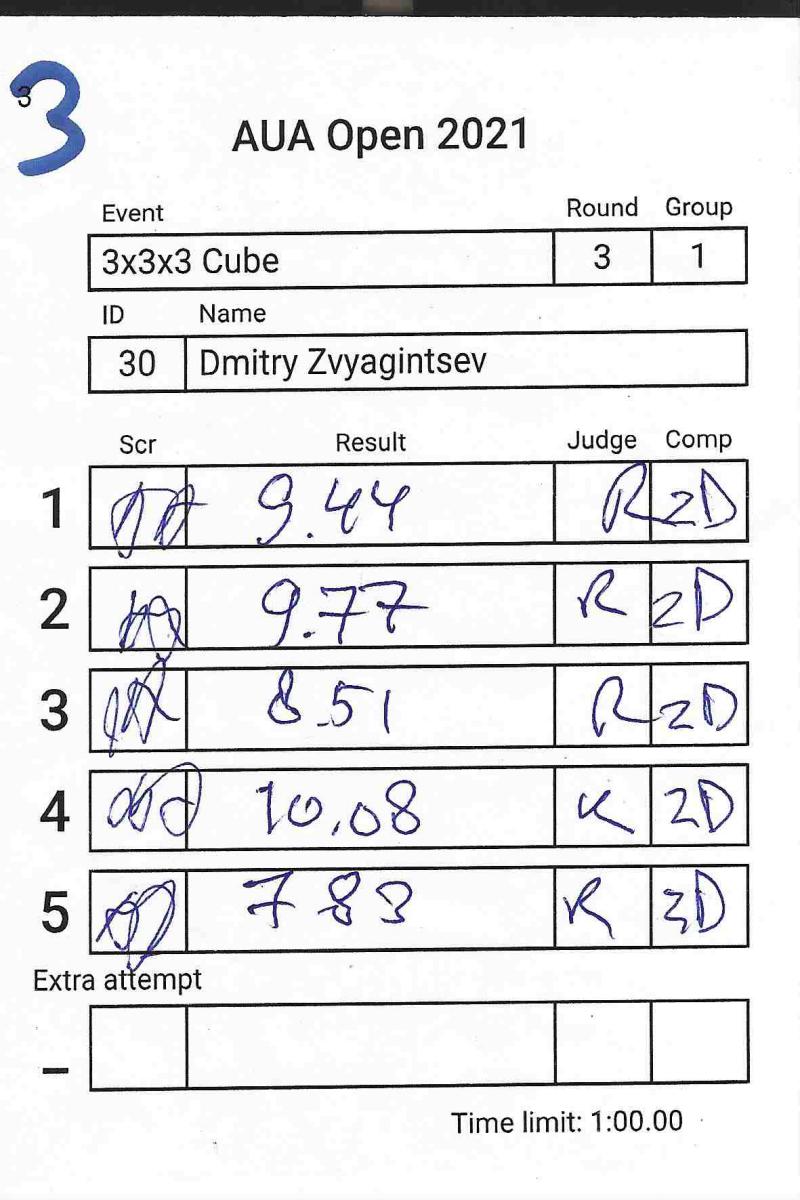 3
3
AUA Open 2021
Event Round Group
3x3x3 Cube 3 1
ID Name
30 Dmitry Zvyagintsev
Scr Result Judge Comp
1 9.44 R ZD
2 9.77 R ZD
3 8.51 R ZD
4 10.08 K ZD
5 7 83 R ZD
Extra attempt
_
Time limit: 1:00.00